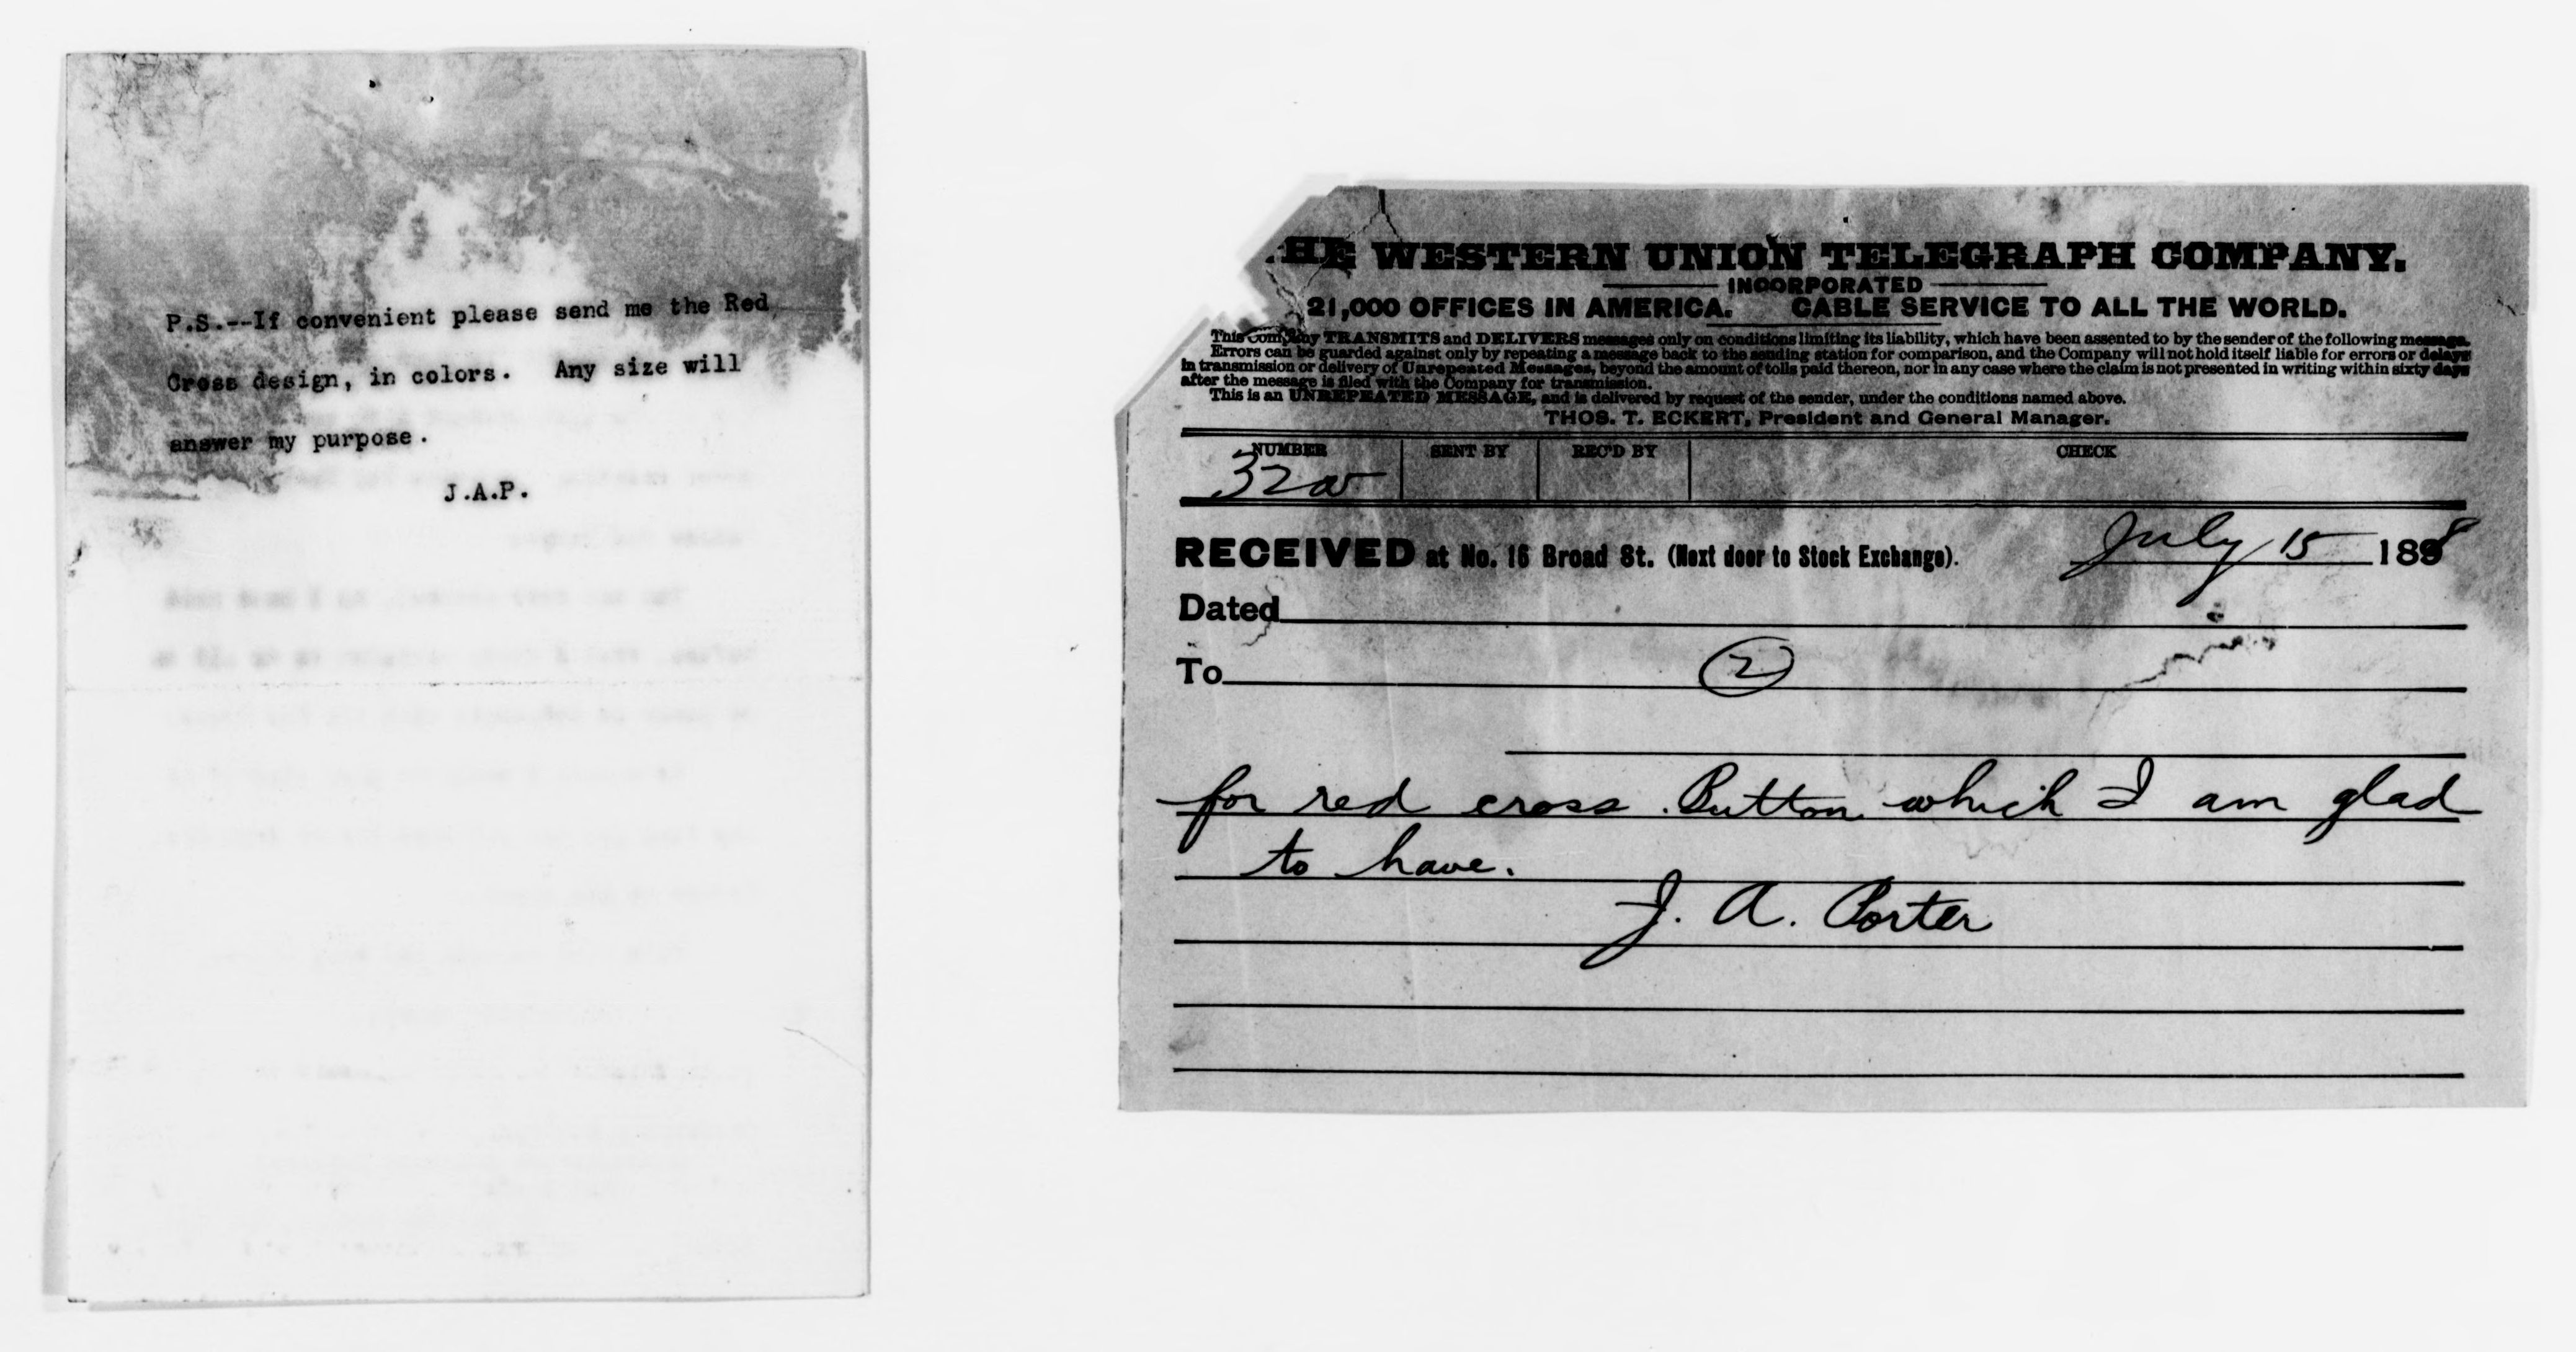 P.S.--If convenient please send me the Red
Cross design, in colors. Any size will
answer my purpose.
J.A.P.
HE WESTERN UNION TELEGRAPH COMPANY.
INCORPORATED
21,000 OFFICES IN AMERICA. CABLE SERVICE TO ALL THE WORLD.
This Company TRANSMITS and DELIVERS messages only on conditions limiting its liability, which have been assented to by the sender of the following message.
Errors can be guarded against only by repeating a message back to the sending station for comparison, and the Company will not hold itself liable for errors or delays
in transmission or delivery of Unrepeated Messages, beyond the amount of tolls paid thereon, nor in any case where the claim is not presented in writing within sixty days
after the message is filed with the Company for transmission.
This is an UNREPEATED MESSAGE, and is delivered by request of the sender, under the conditions named above.
THOS. T. ECKERT, President and General Manager.
NUMBER SENT BY REC'D BY CHECK
32
RECEIVED at No. 16 Broad St. (Next door to Stock Exchange). July 15 1898
Dated
To 2
for red cross Button which I am glad
to have.
J. A. Porter